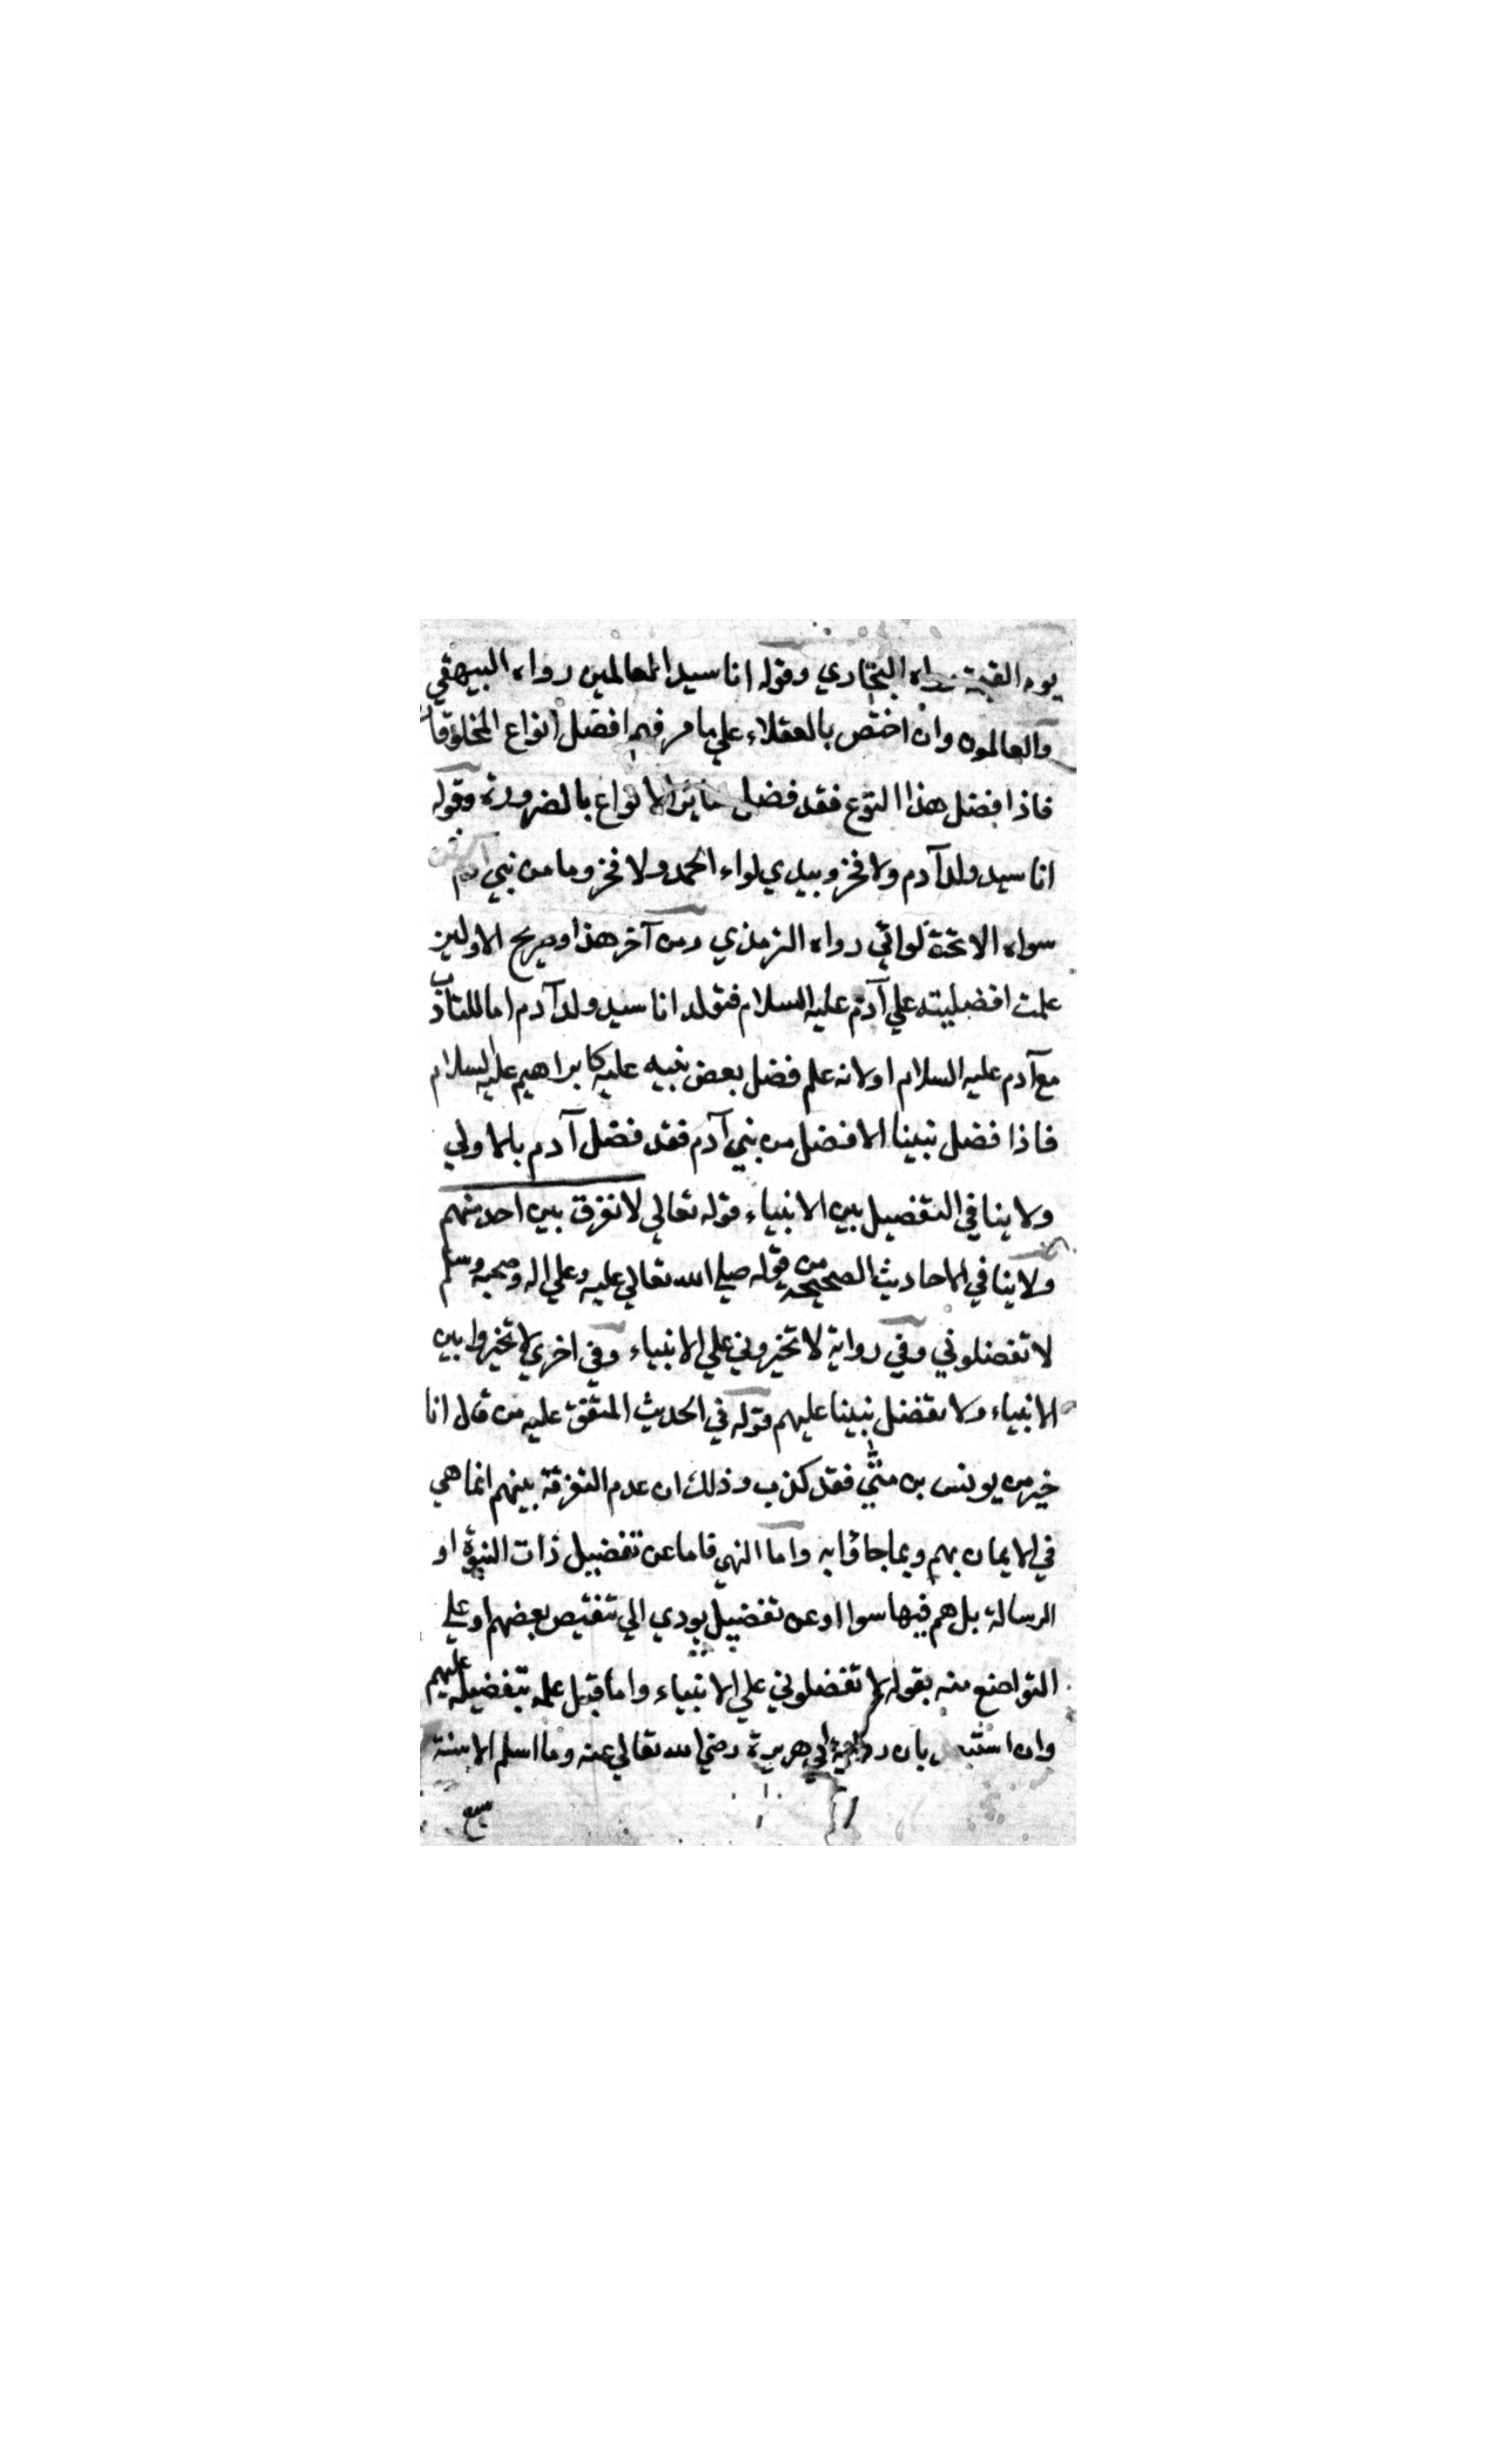 يوم القيمة رواه البخاري وقوله انا سيد العالمين رواه البيهقي
والعالمون وان اختص بالعقلاء علي ما مر فهم افضل انواع المخلوقات
فاذا فضل هذا النوع فقد فضل سائر الانواع بالضرورة وقوله
انا سيد ولد آدم ولا فخر وبيدي لواء الحمد ولا فخر وما من نبي آدم
سواه الا تحت لوائي رواه الترمذي ومن آخر هذا وصريح الاولين
علمت افضليته علي آدم عليه السلام فقوله انا سيد ولد آدم اما للتأدب
مع آدم عليه السلام او لانه علم فضل بعض بنيه عليه كابراهيم عليه السلام
فاذا فضل نبينا الافضل من بني آدم فقد فضل آدم بالاولي
ولا ينافي التفضيل بين الانبياء قوله تعالي لا نفرق بين احد منهم
ولا ينافي الاحاديث الصحيحه من قوله صلي الله تعالي عليه وعلي اله وصحبه وسلم
لا تفضلوني وفي رواية لا تخيروني علي الانبياء وفي اخري لا تخيروا بين
الانبياء ولا يفضل نبينا عليهم قوله في الحديث المتفق عليه من قال انا
خير من يونس بن متي فقد كذب وذلك ان عدم التفرقة بينهم انما هي
في الايمان بهم وبما جاؤا به واما النهي فاما عن تفضيل ذات النبوة او
الرسالة بل هم فيها سوا او عن تفضيل يودي الي تنقيص بعضهم او علي
التواضع منه بقوله لا تفضلوني علي الانبياء واما قبل علمه بتفضيله عليهم
وان استبعد بان رواية ابي هريرة رضي الله تعالي عنه وما اسلم الا سنة
سبع